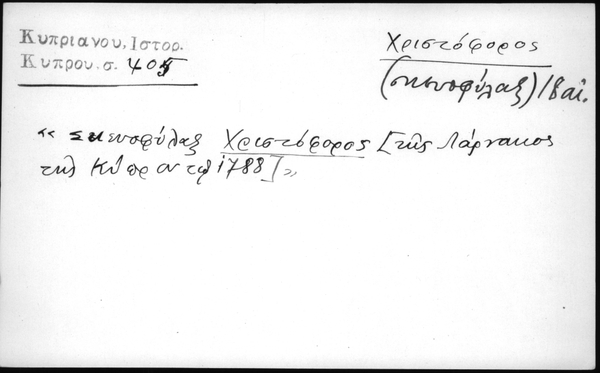 Κυπριανου, Ιστορ.
Κυπρου. σ. 405
Χριστόφορος
(σκευοφύλαξ) 18 αἰ.
« σκευοφύλαξ Χριστόφορος [τῆς Λάρνακος
τῆς Κύπρου τῷ 1788] »